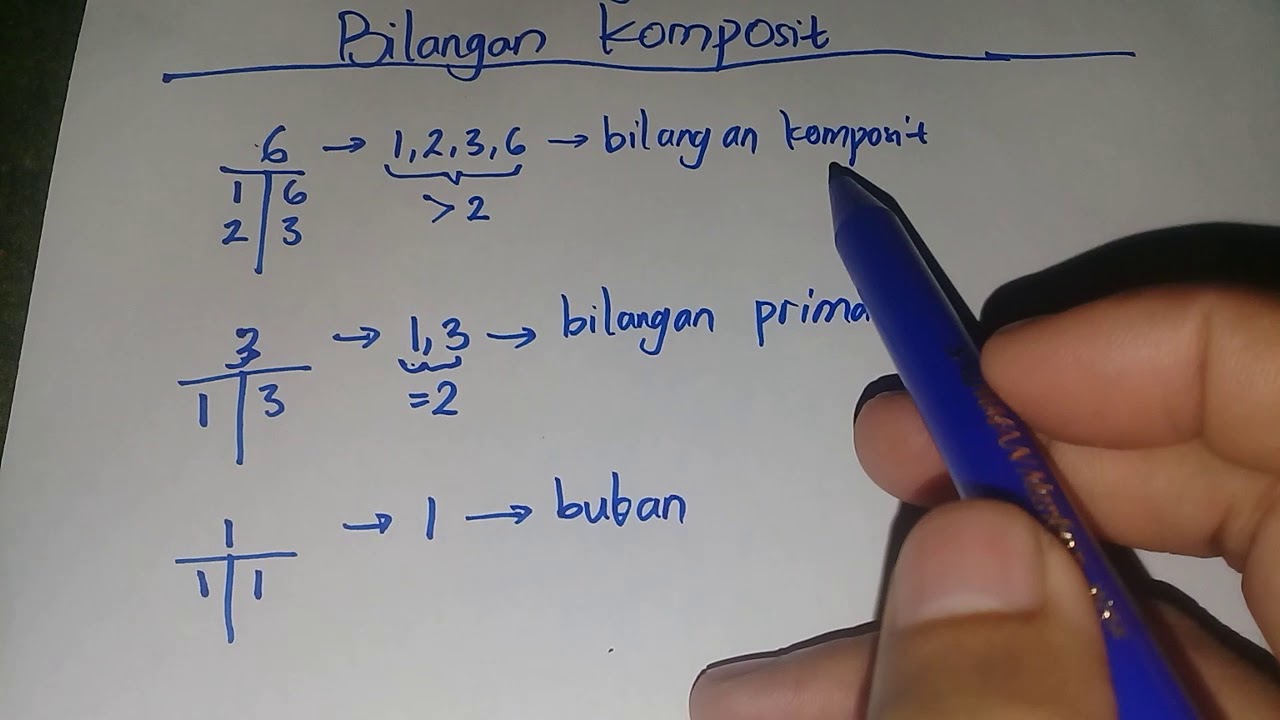 Bilangan Komposit
6 → 1, 2, 3, 6 → bilangan komposit
1 | 6 > 2
2 | 3
3 → 1, 3 → bilangan prima
1 | 3 = 2
1 → 1 → bukan
1 | 1